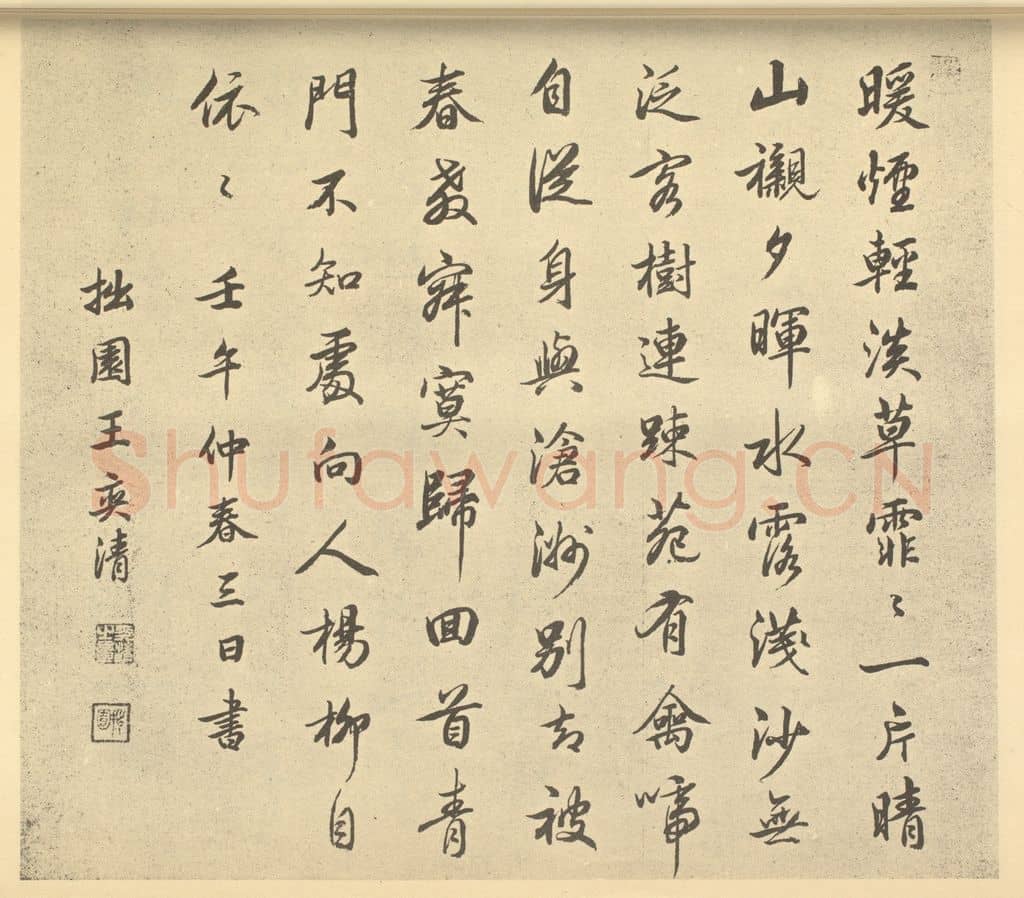 暖煙輕淡草霏〻一片晴
山襯夕暉水露淺沙無
泛客樹連疎苑有禽啼
自從身與滄洲別却被
春教寂寞歸回首青
門不知處向人楊柳自
依〻壬午仲春三日書
拙園王奕清
Shufawang.CN